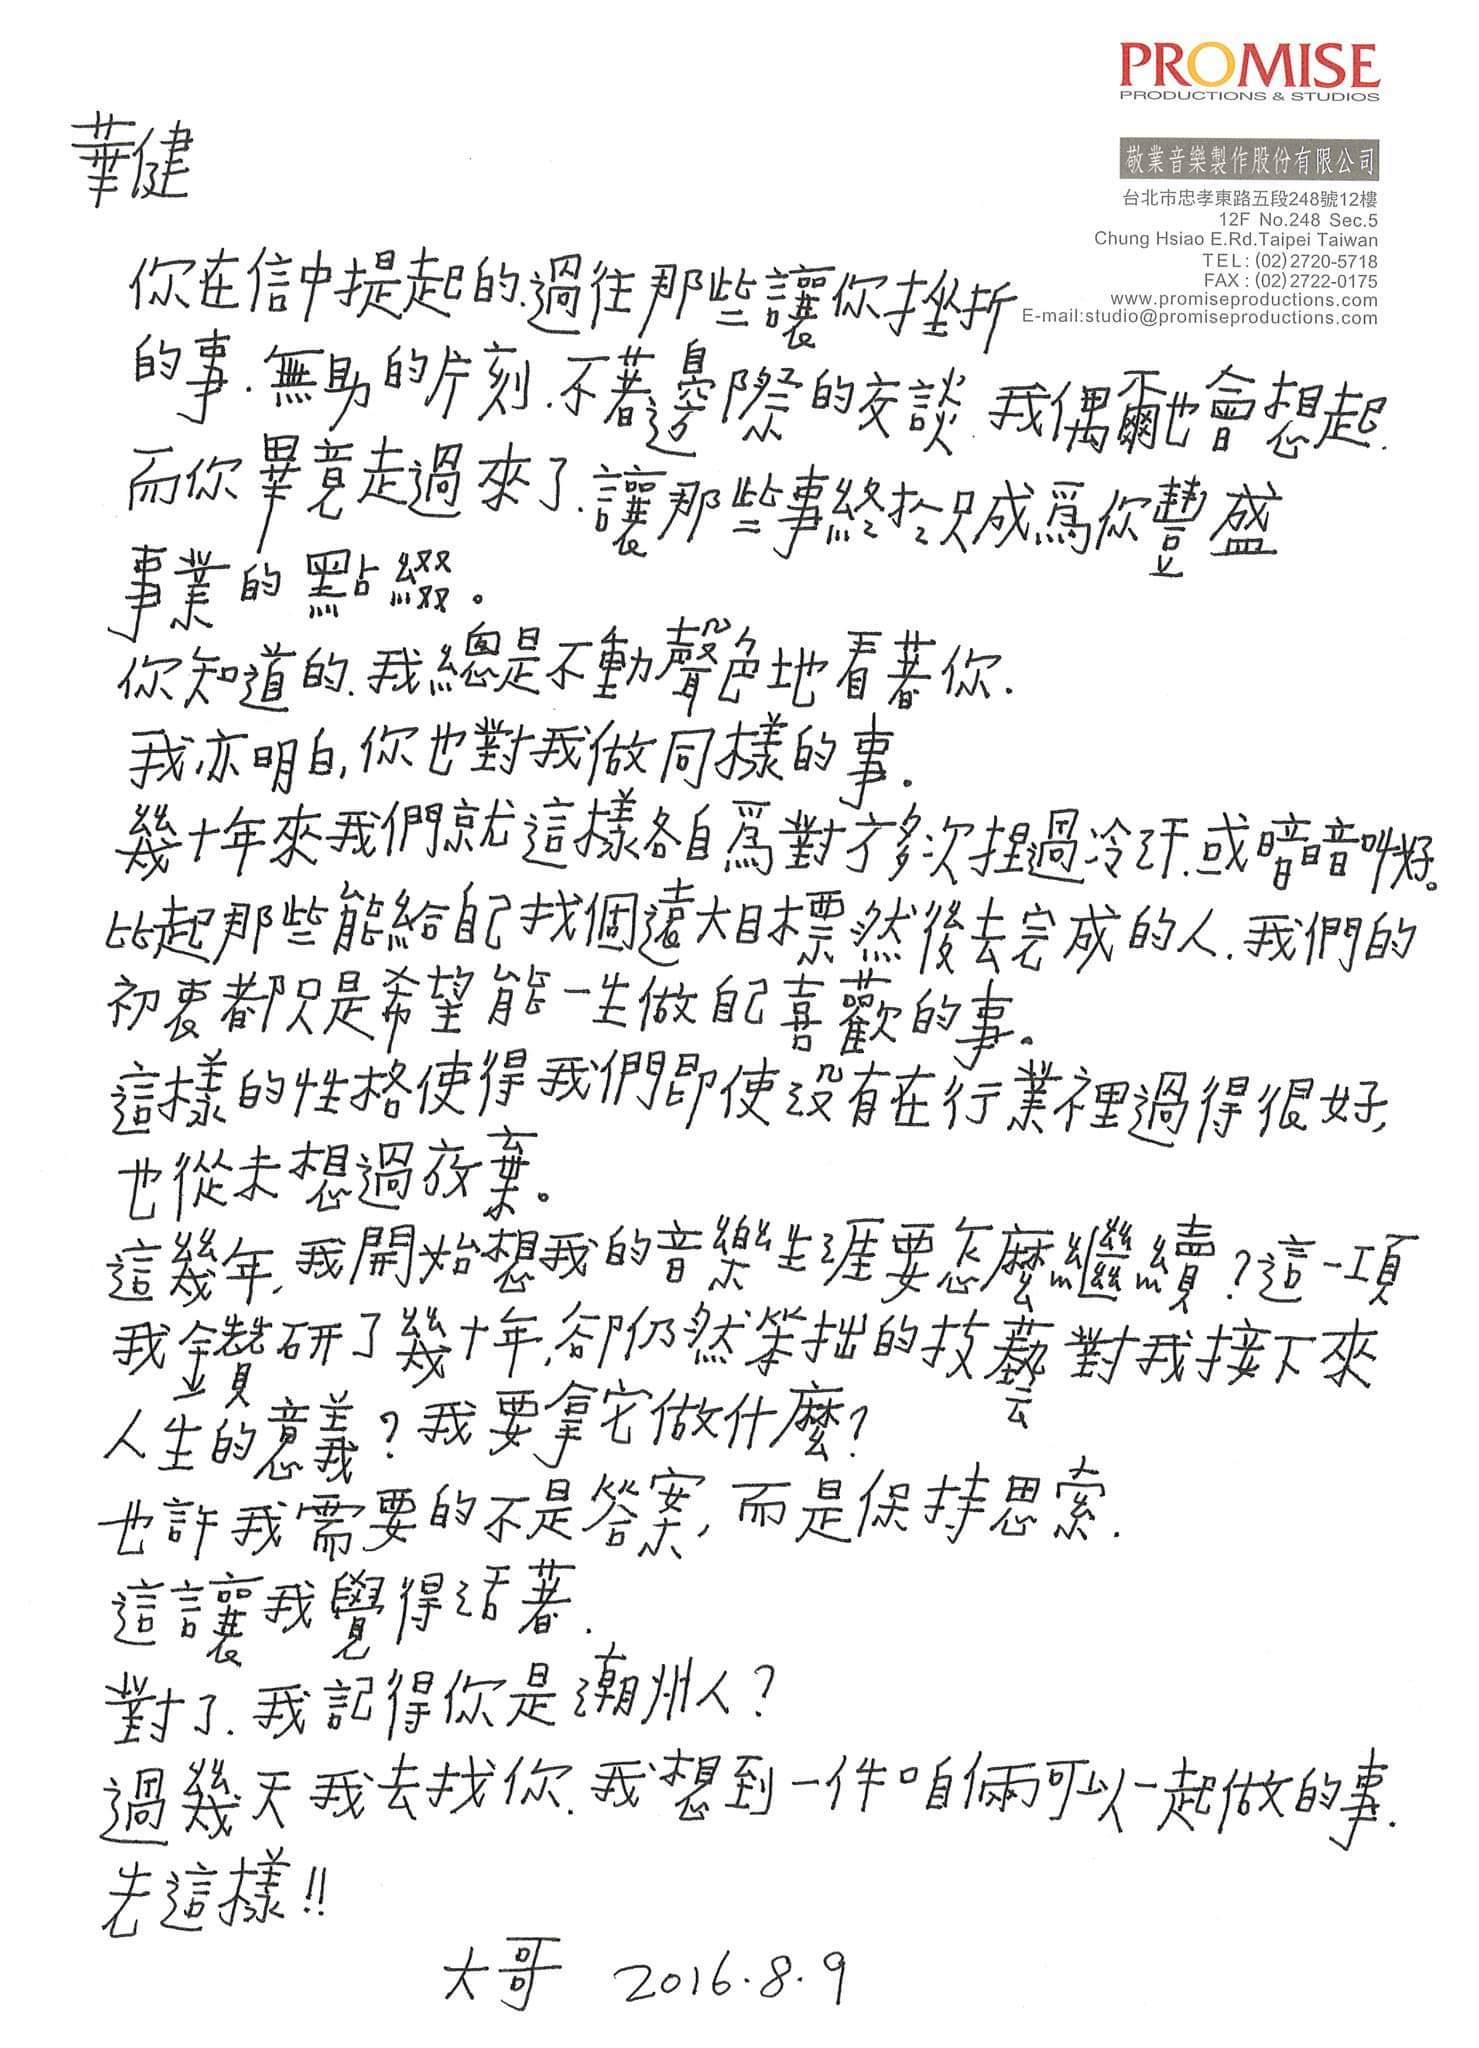 PROMISE
PRODUCTIONS & STUDIOS
敬業音樂製作股份有限公司
台北市忠孝東路五段248號12樓
12F No.248 Sec.5
Chung Hsiao E.Rd.Taipei Taiwan
TEL:(02)2720-5718
FAX:(02)2722-0175
www.promiseproductions.com
E-mail:studio@promiseproductions.com
華健
你在信中提起的.過往那些讓你挫折
的事.無助的片刻.不著邊際的交談 我偶爾也會想起.
而你畢竟走過來了.讓那些事終於只成爲你豐盛
事業的點綴。
你知道的.我總是不動聲色地看著你.
我亦明白,你也對我做同樣的事.
幾十年來我們就這樣各自爲對方多次捏過冷汗.或暗暗叫好。
比起那些能給自己找個遠大目標然後去完成的人.我們的
初衷都只是希望能一生做自己喜歡的事。
這樣的性格使得我們即使沒有在行業裡過得很好,
也從未想過放棄。
這幾年,我開始想我的音樂生涯要怎麼繼續?這一項
我鑽研了幾十年,卻仍然笨拙的技藝對我接下來
人生的意義?我要拿它做什麼?
也許我需要的不是答案,而是保持思索.
這讓我覺得活著.
對了.我記得你是潮州人?
過幾天我去找你.我想到一件咱倆可以一起做的事.
先這樣!!
大哥 2016.8.9